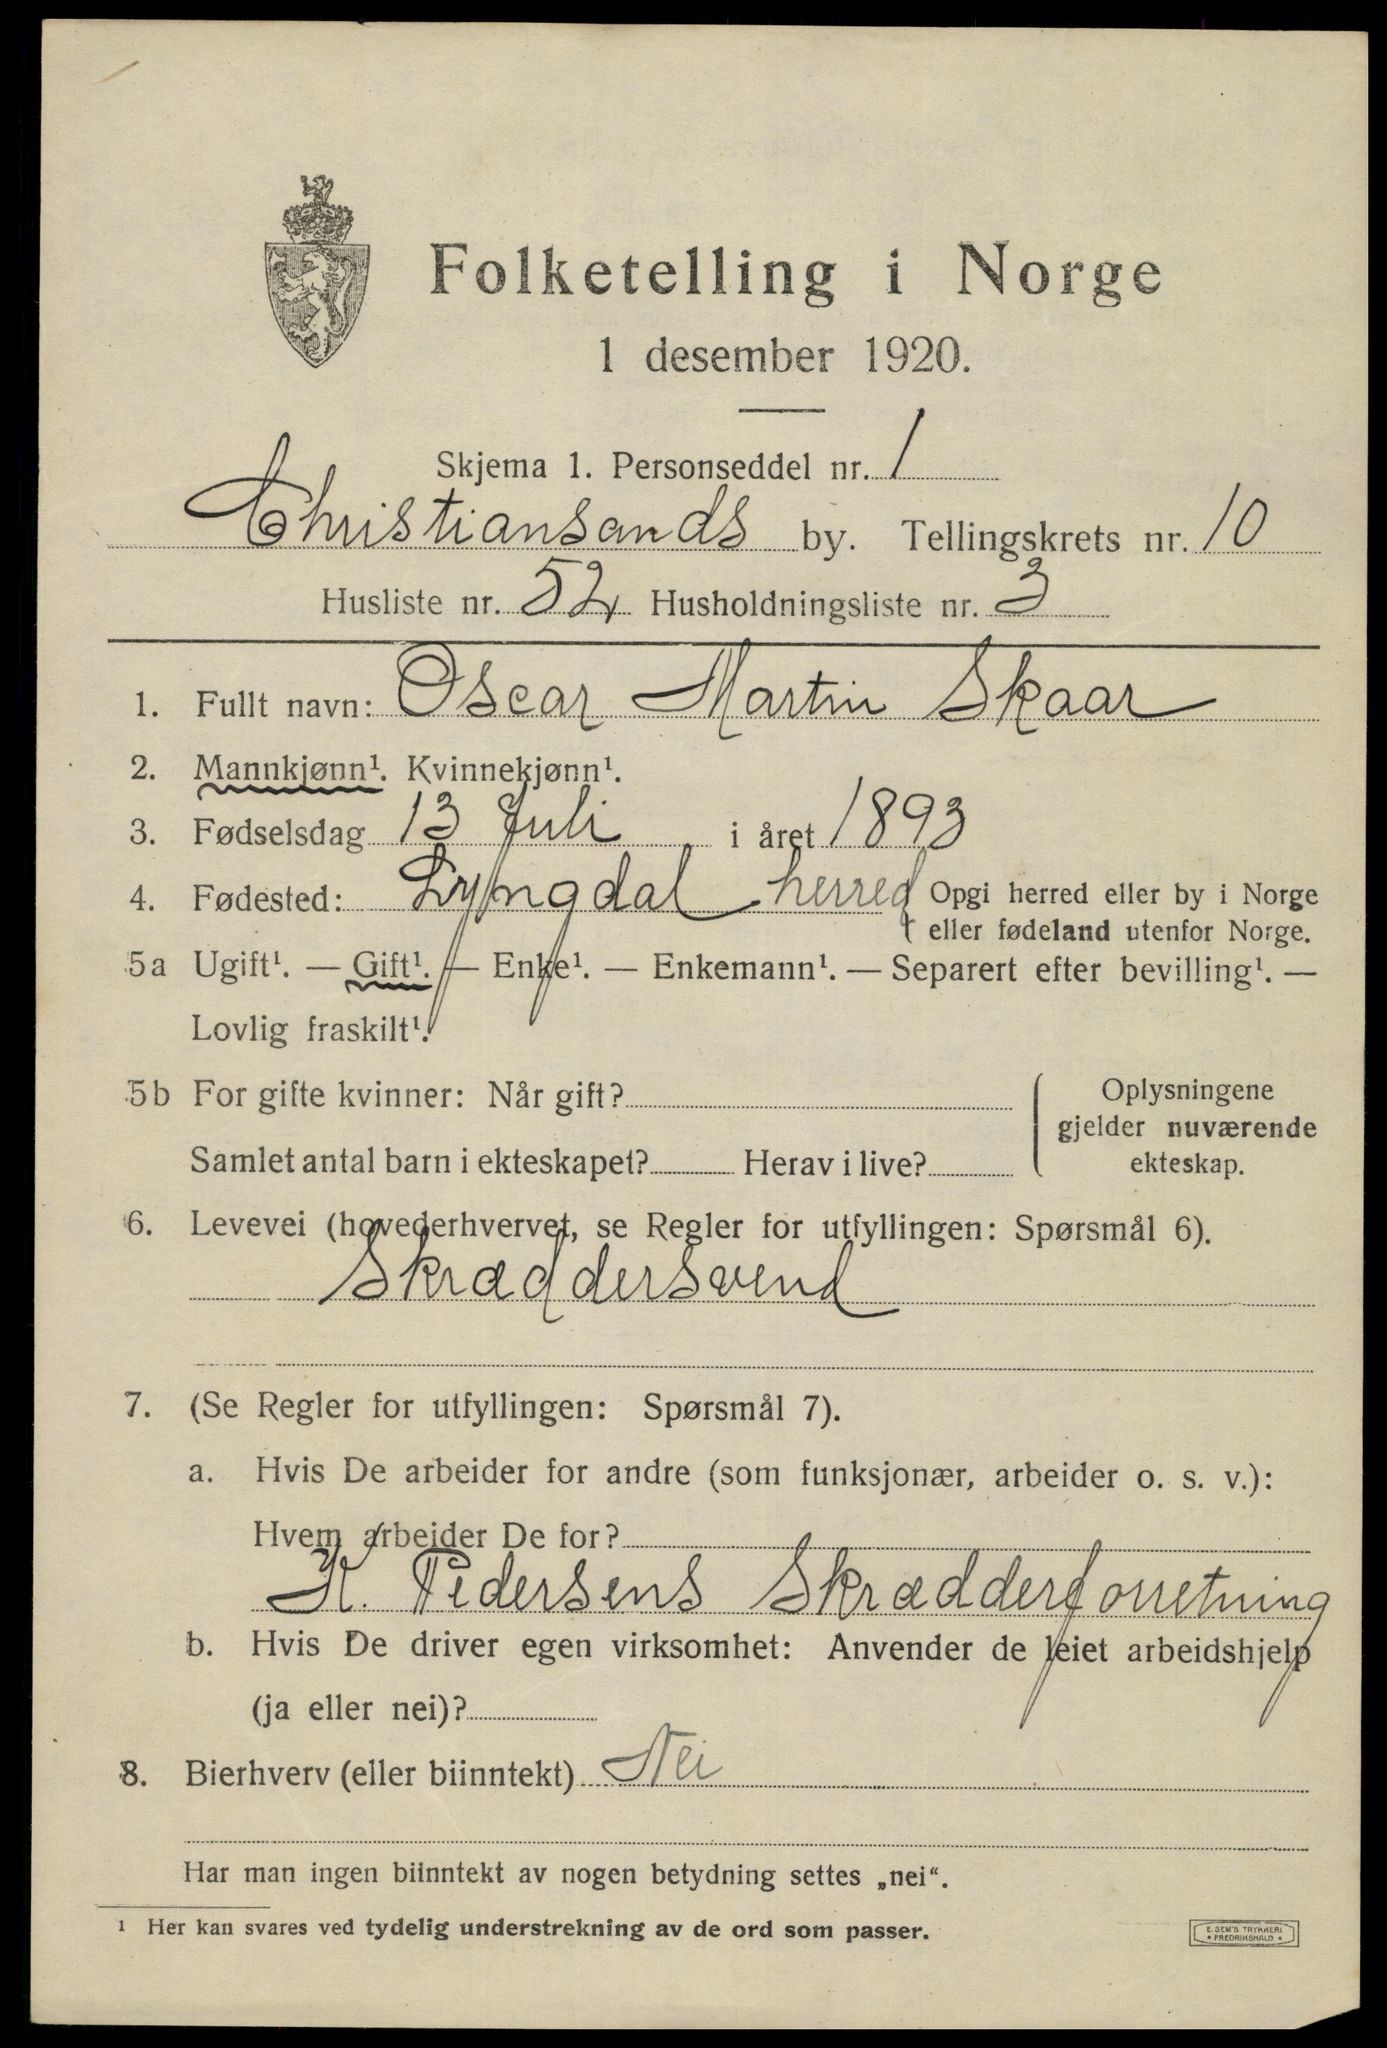 Folketelling i Norge
1 desember 1920.
Skjema 1. Personseddel nr. 1
Christiansands by. Tellingskrets nr. 10
Husliste nr. 52 Husholdningsliste nr. 3
1. Fullt navn: Oscar Martin Skaar
2. Mannkjønn¹. Kvinnekjønn¹.
3. Fødselsdag 13 Juli i året 1893
4. Fødested: Lyngdal herred Opgi herred eller by i Norge
eller fødeland utenfor Norge.
5a Ugift¹. — Gift¹. — Enke¹. — Enkemann¹. — Separert efter bevilling¹. —
Lovlig fraskilt¹.
5b For gifte kvinner: Når gift? Oplysningene
gjelder nuværende
Samlet antal barn i ekteskapet? Herav i live? ekteskap.
6. Levevei (hovederhvervet, se Regler for utfyllingen: Spørsmål 6).
Skræddersvend
7. (Se Regler for utfyllingen: Spørsmål 7).
a. Hvis De arbeider for andre (som funksjonær, arbeider o. s. v.):
Hvem arbeider De for?
K. Pedersens Skrædderforretning
b. Hvis De driver egen virksomhet: Anvender de leiet arbeidshjelp
(ja eller nei)?
8. Bierhverv (eller biinntekt) Nei
Har man ingen biinntekt av nogen betydning settes „nei“.
¹ Her kan svares ved tydelig understrekning av de ord som passer.
E. SEM'S TRYKKERI
• FREDRIKSHALD •